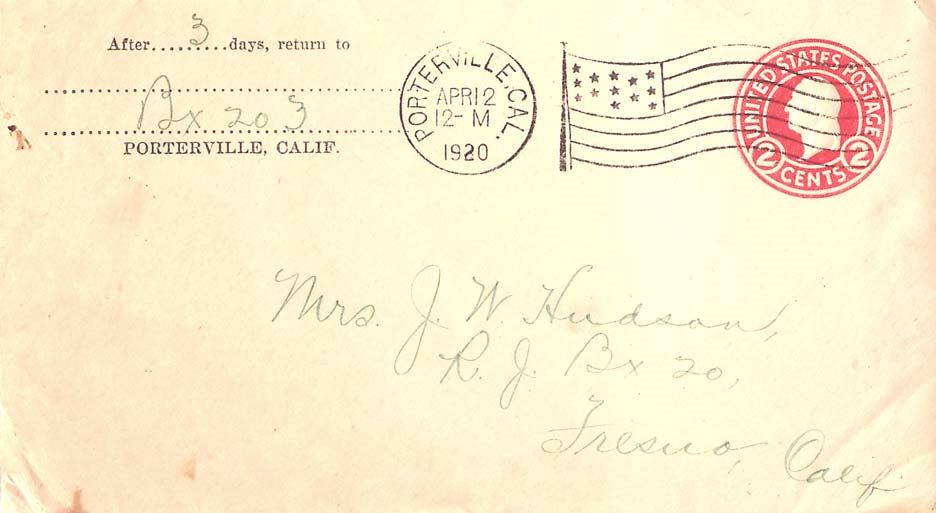 After.....3....days, return to
Bx 203
PORTERVILLE, CALIF.
PORTERVILLE, CAL.
APR 12
12-M
1920
UNITED STATES POSTAGE
2 CENTS 2
Mrs. J. W. Hudson,
R. J. Bx 20,
Fresno, Calif